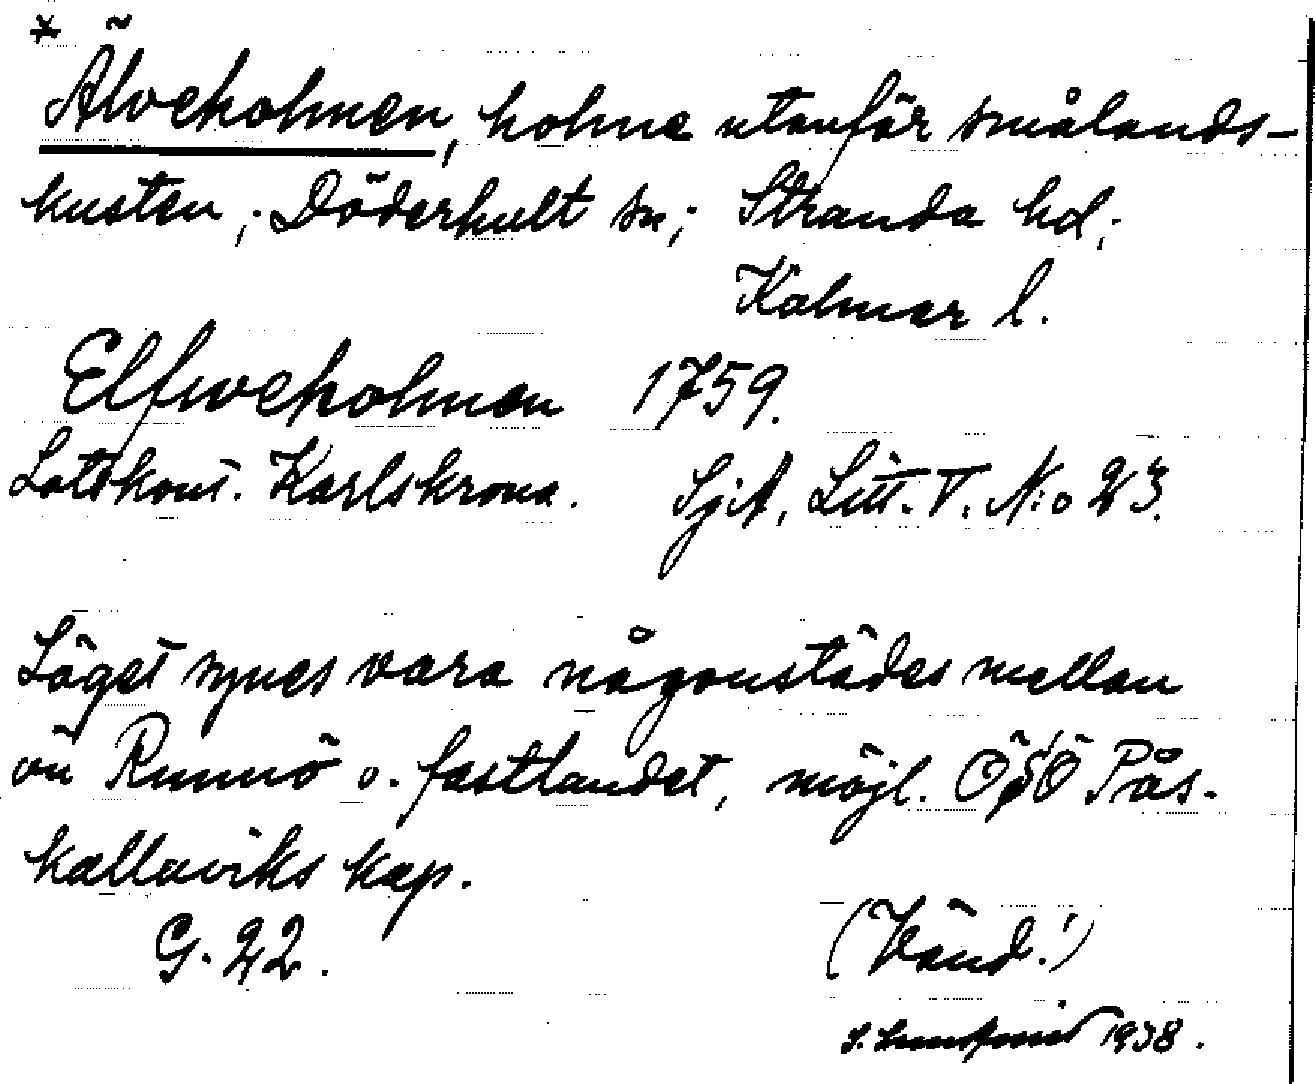 * Älvekolmen, holme utanför smålands-
kusten; Döderhult sn; Stranda hd;
Kalmar l.
Elfwekolmen 1759.
Lotskont. Karlskrona. SjA, Litt. V. N:o 23.
Läget synes vara någonstädes mellan
ön Runnö o. fastlandet, möjl. ÖSÖ Pås-
kallaviks kap.
G. 22.
(Vänd!)
1938.